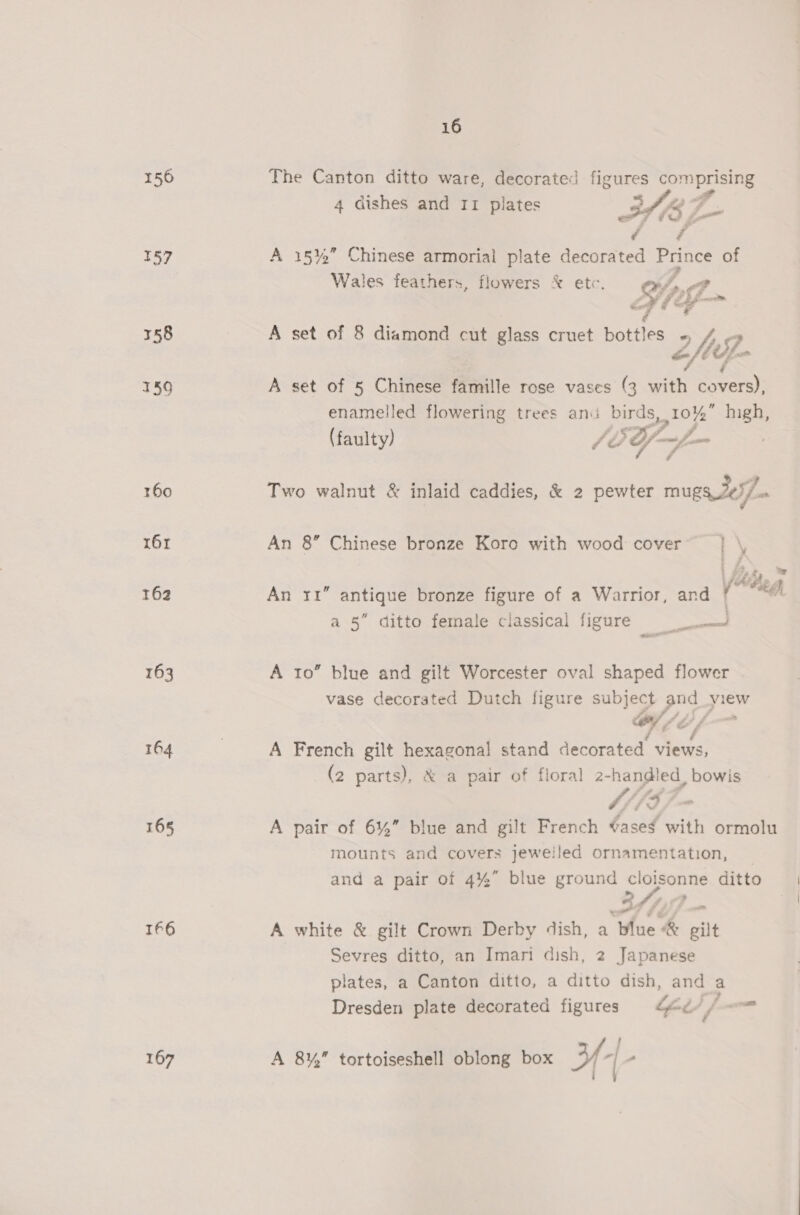 16
156 The Canton ditto ware, decorated figures comprising
4 dishes and 11 plates
157 A 15½" Chinese armorial plate decorated Prince of
Wales feathers, flowers & etc.
158 A set of 8 diamond cut glass cruet bottles
159 A set of 5 Chinese famille rose vases (3 with covers),
enamelled flowering trees and birds, 10½" high,
(faulty)
160 Two walnut & inlaid caddies, & 2 pewter mugs
161 An 8" Chinese bronze Koro with wood cover
162 An 11" antique bronze figure of a Warrior, and
a 5" ditto female classical figure
163 A 10" blue and gilt Worcester oval shaped flower
vase decorated Dutch figure subject and view
164 A French gilt hexagonal stand decorated views,
(2 parts), & a pair of floral 2-handled bowls
165 A pair of 6½" blue and gilt French vases with ormolu
mounts and covers jewelled ornamentation,
and a pair of 4½" blue ground cloisonne ditto
166 A white & gilt Crown Derby dish, a blue & gilt
Sevres ditto, an Imari dish, 2 Japanese
plates, a Canton ditto, a ditto dish, and a
Dresden plate decorated figures
167 A 8½" tortoiseshell oblong box